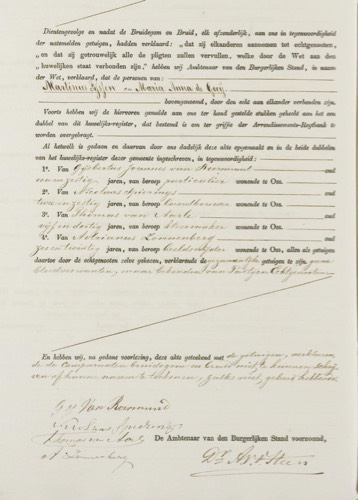 Dientengevolge en nadat de Bruidegom en Bruid, elk afzonderlijk, aan ons in tegenwoordigheid
der natemelden getuigen, hadden verklaard: „dat zij elkanderen aannemen tot echtgenooten,
„en dat zij getrouwelijk alle de pligten zullen vervullen, welke door de Wet aan den
„huwelijken staat verbonden zijn," hebben wij Ambtenaar van den Burgerlijken Stand, in naam
der Wet, verklaard, dat de personen van:
Martinus en Maria Anna de
bovengenoemd, door den echt aan elkander verbonden zijn.
Voorts hebben wij de hiervoren gemelde aan ons ter hand gestelde stukken gehecht aan het een
dubbel van dit huwelijks-register, dat bestemd is om ter griffie der Arrondissements-Regtbank te
worden overgebragt.
Al hetwelk is gedaan en daarvan door ons dadelijk deze akte opgemaakt en in de beide dubbelen
van het huwelijks-register dezer gemeente ingeschreven, in tegenwoordigheid:
1º. Van Gijsbertus Joannes van Roosmund oud
jaren, van beroep wonende te Oss.
2º. Van Nicolaas oud
jaren, van beroep wonende te Oss.
3º. Van Thomas van oud
vijf en dertig jaren, van beroep wonende te Oss.
4º. Van Adrianus Zonnenberg oud
zes en twintig jaren, van beroep wonende te Oss, allen als getuigen
daartoe door de echtgenooten zelve gekozen, verklarende de getuigen te zijn geene
bloedverwanten, maar bekenden van
En hebben wij, na gedane voorlezing, deze akte geteekend met de getuigen, verklarende
de Comparanten bruidegom en bruid niet te kunnen
of hunne naam te teekenen, zulks niet geleerd hebbende.
G J Van Roosmund
Thomas van
A Zonnenberg
De Ambtenaar van den Burgerlijken Stand voornoemd,